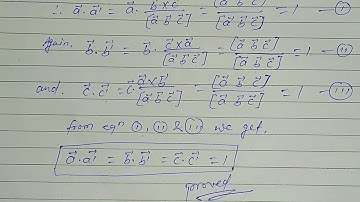 ∴ a⃗·a⃗' = a⃗· b⃗×c⃗/[a⃗ b⃗ c⃗] = [a⃗ b⃗ c⃗]/[a⃗ b⃗ c⃗] = 1 — (I)
Again, b⃗·b⃗' = b⃗· c⃗×a⃗/[a⃗ b⃗ c⃗] = [a⃗ b⃗ c⃗]/[a⃗ b⃗ c⃗] = 1 — (II)
and. c⃗·c⃗' = c⃗· a⃗×b⃗/[a⃗ b⃗ c⃗] = [a⃗ b⃗ c⃗]/[a⃗ b⃗ c⃗] = 1 — (III)
from eqⁿ (I), (II) & (III) we get,
a⃗·a⃗' = b⃗·b⃗' = c⃗·c⃗' = 1
proved